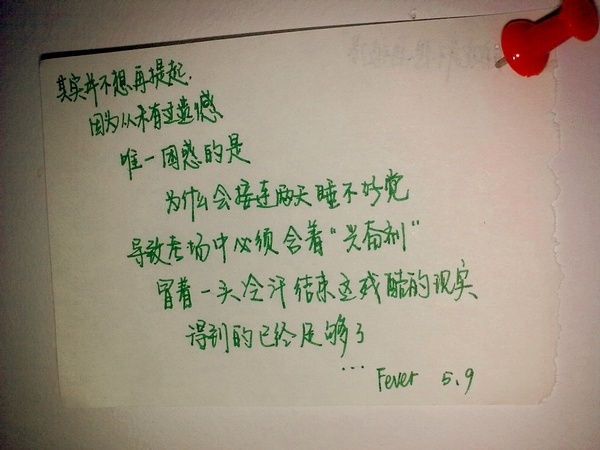 其实并不想再提起.
因为从未有过遗憾
唯一困惑的是
为什么会接连两天睡不好觉
导致考场中必须含着“兴奋剂”
冒着一头冷汗结束这残酷的现实
得到的已经足够了
...
Fever 5.9